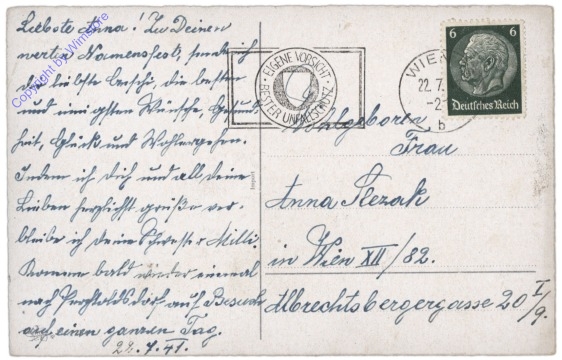 Liebste Anna! Zu Deinem
werten Namensfest, sende ich
die liebste Peperl die besten
und innigsten Wünsche, Gesund-
heit, Glück und Wohlergehen.
Indem ich Dich und all deine
Lieben herzlichst grüße ver-
bleibe ich deine Schwester Milli.
Komme bald wieder einmal
nach Perchtoldsdorf auf Besuch
auf einen ganzen Tag.
22.7.41.
Copyright by Winstore
EIGENE VORSICHT
BESTER UNFALLSCHUTZ
WIEN
22.7.
b
6 6
Deutsches Reich
Wohlgeboren
Frau
Anna Slezak
in Wien XII/82.
Albrechtsbergergasse 20 I/9.
Import